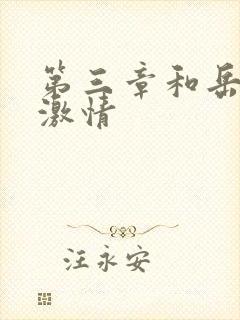 第三章和岳
激情
汪永安